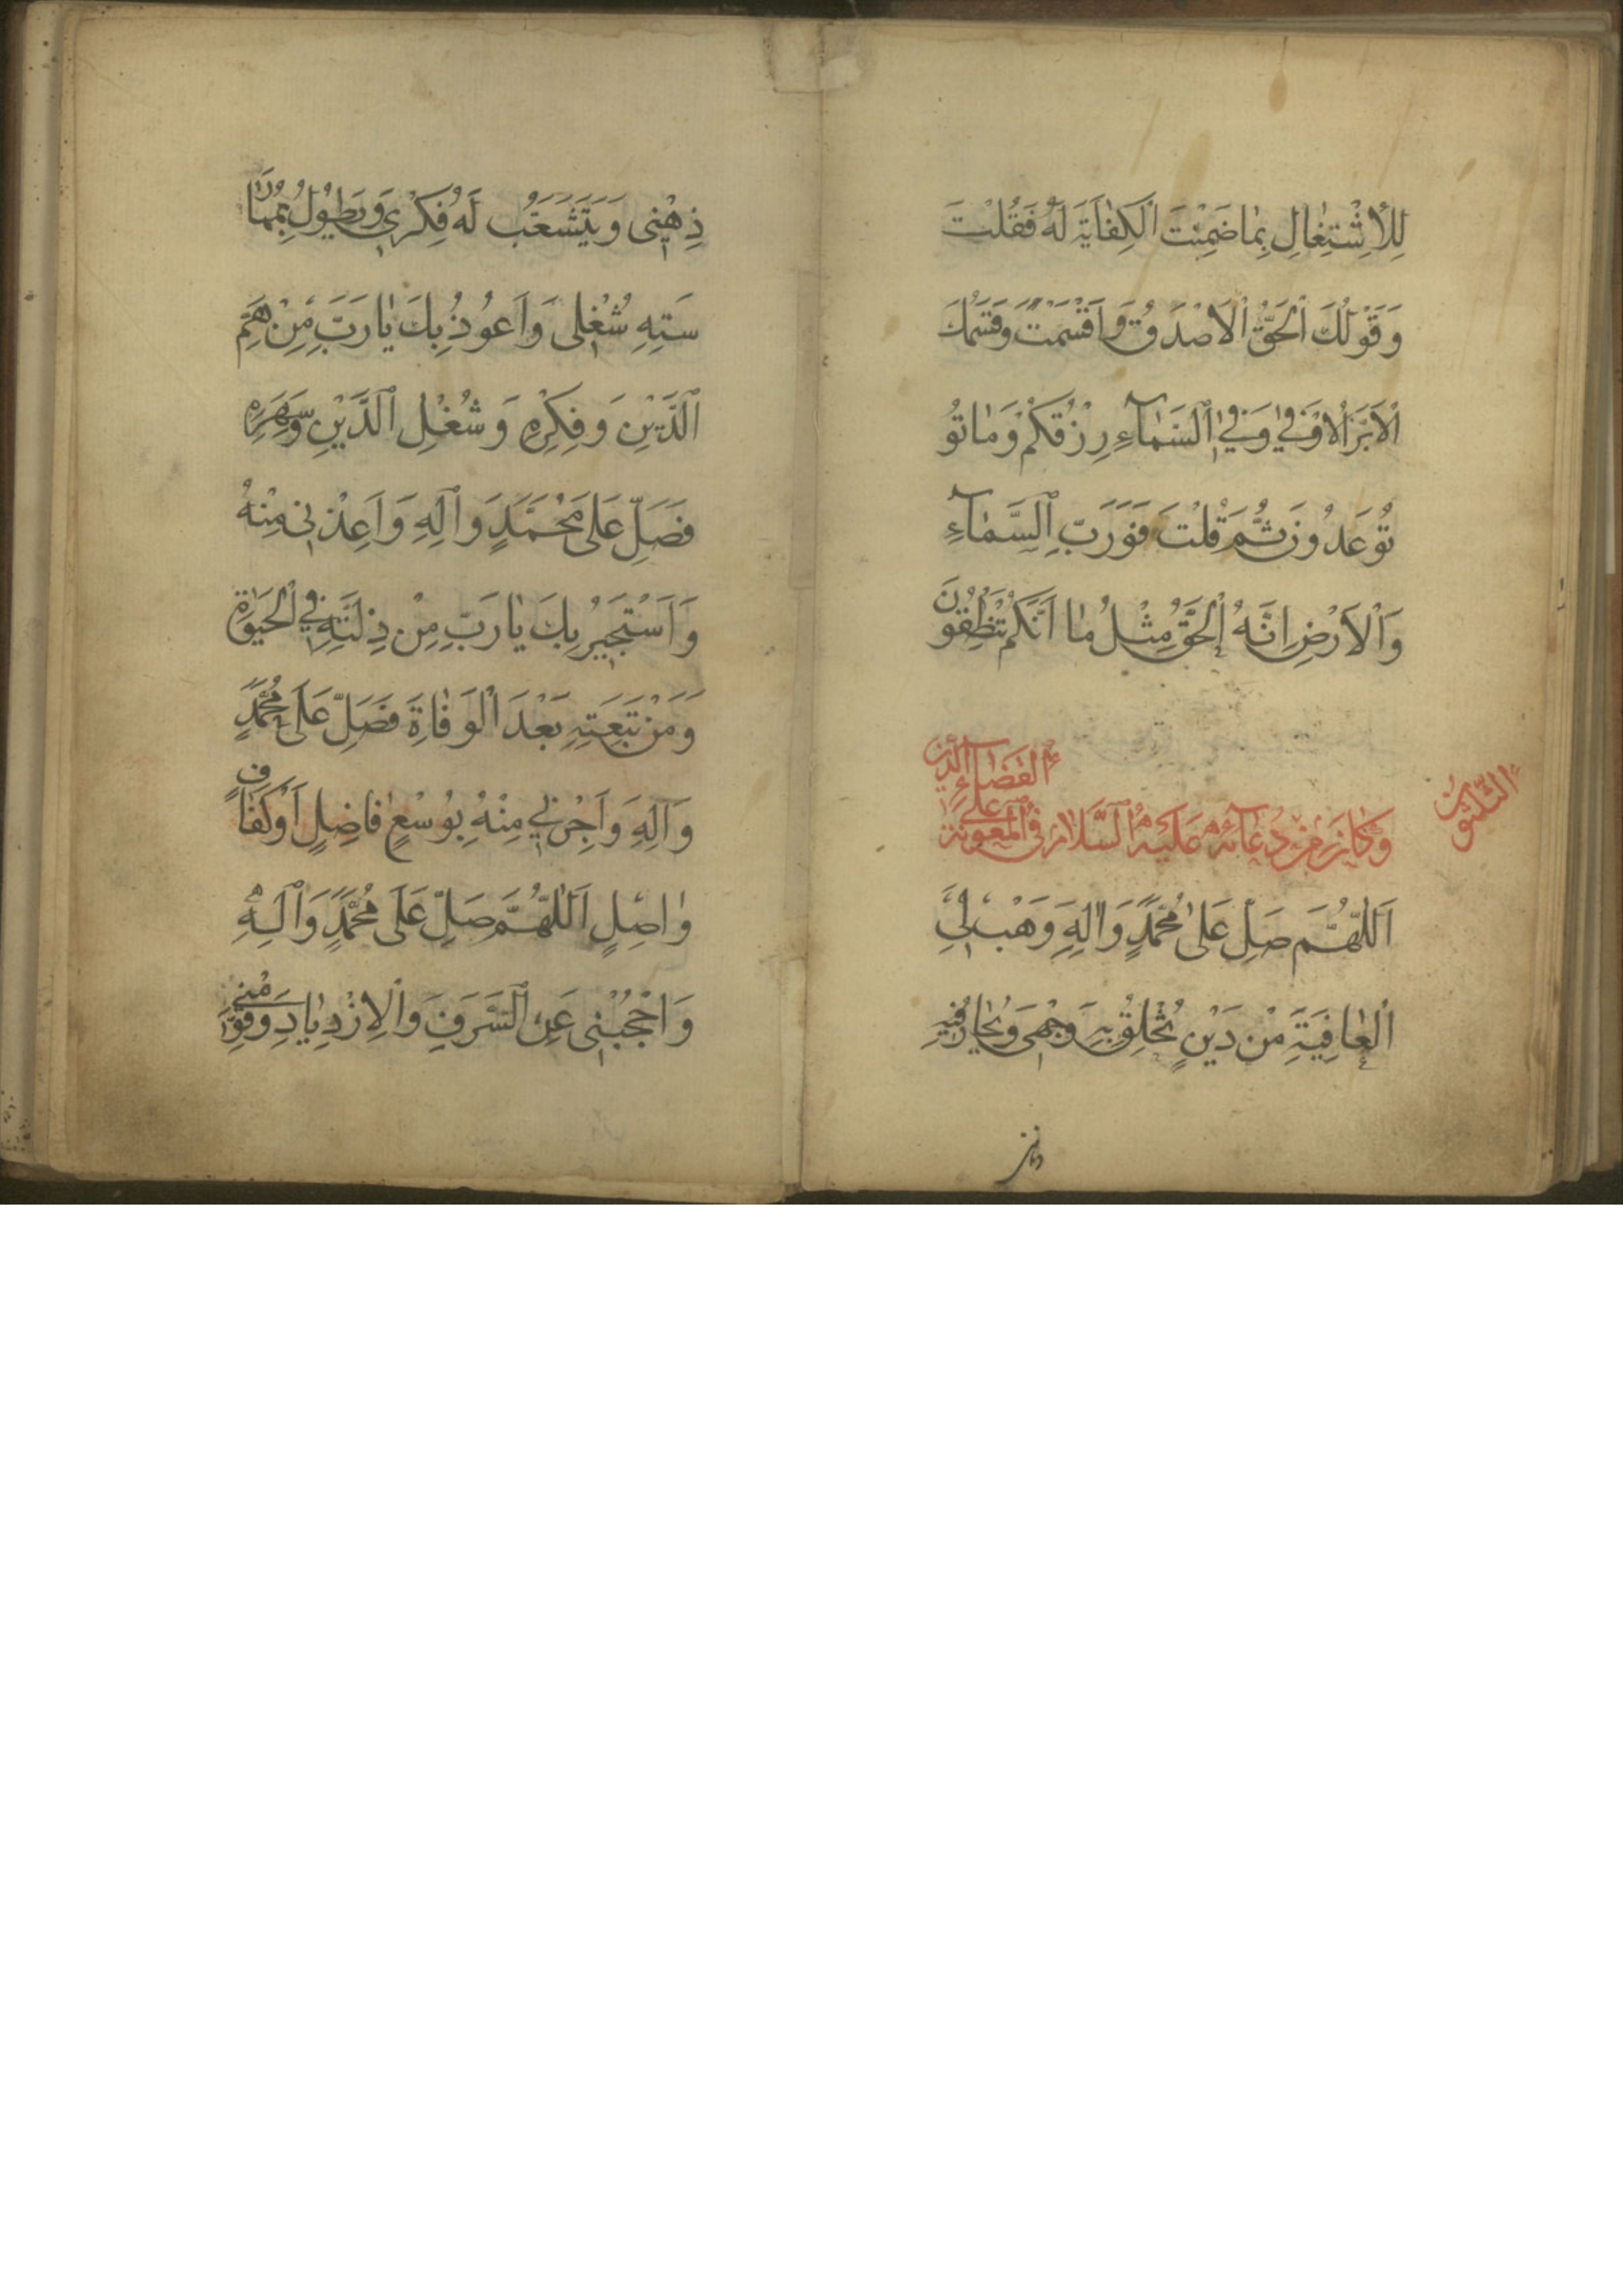 لِلْاِشْتِغٰالِ بِمٰا ضَمِنْتَ الْكِفٰايَةَ لَهُ فَقُلْتَ
وَقَوْلُكَ الْحَقُّ الْاَصْدَقُ وَاَقْسَمْتَ وَقَسَمُكَ
الْاَبَرُّ الْاَوْفٰى وَفِى السَّمٰآءِ رِزْقُكُمْ وَمٰا تُو
تُوعَدُونَ ثُمَّ قُلْتَ فَوَرَبِّ السَّمٰآءِ
وَالْاَرْضِ اِنَّهُ لَحَقٌّ مِثْلَ مٰا اَنَّكُمْ تَنْطِقُونَ
الثلثون
وَكٰانَ مِنْ دُعٰآئِهِ عَلَيْهِ السَّلَامُ فِى الْمَعُونَةِ عَلٰى قَضٰآءِ الدَّيْنِ
اَللّٰهُمَّ صَلِّ عَلٰى مُحَمَّدٍ وَاٰلِهِ وَهَبْ لِىَ
الْعٰافِيَةَ مِنْ دَيْنٍ تُخْلِقُ بِهِ وَجْهِى وَيَحٰارُ فِيهِ
ذِهْنِى وَيَتَشَعَّبُ لَهُ فِكْرِى وَيَطُولُ بِمُمٰارَ
سَتِهِ شُغْلِى وَاَعُوذُ بِكَ يٰا رَبِّ مِنْ هَمِّ
الدَّيْنِ وَفِكْرِهِ وَشُغْلِ الدَّيْنِ وَسَهَرِهِ
فَصَلِّ عَلٰى مُحَمَّدٍ وَاٰلِهِ وَاَعِذْنِى مِنْهُ
وَاَسْتَجِيرُ بِكَ يٰا رَبِّ مِنْ ذِلَّتِهِ فِى الْحَيٰوةِ
وَمِنْ تَبِعَتِهِ بَعْدَ الْوَفٰاةِ فَصَلِّ عَلٰى مُحَمَّدٍ
وَاٰلِهِ وَاَجِرْنِى مِنْهُ بِوُسْعٍ فٰاضِلٍ اَوْ كَفٰافٍ
وٰاصِلٍ اَللّٰهُمَّ صَلِّ عَلٰى مُحَمَّدٍ وَاٰلِهِ
وَاحْجُبْنِى عَنِ السَّرَفِ وَالْاِزْدِيٰادِ وَقَوِّمْنِى